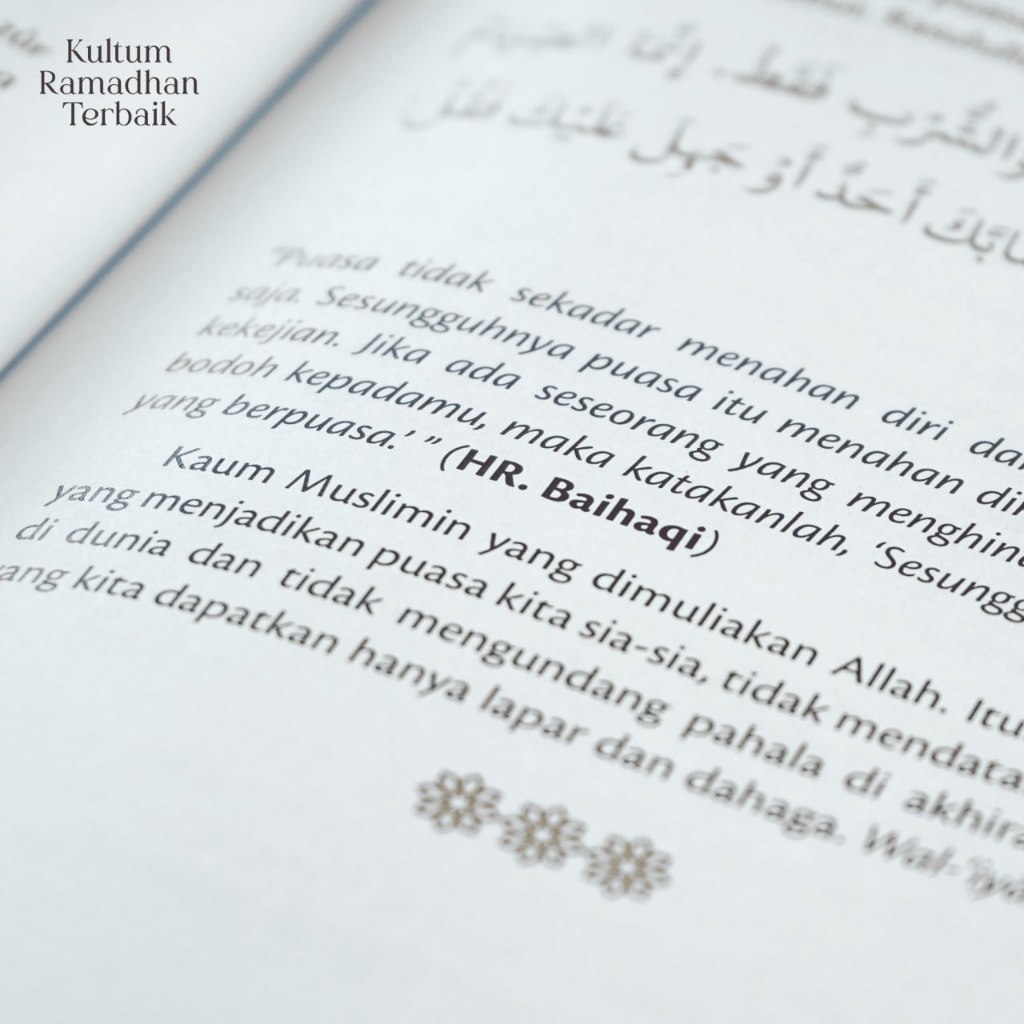 Kultum
Ramadhan
Terbaik
وَالشُّرْبِ فَقَطْ. إِنَّمَا الصِّيَامُ
أَحَدٌ أَوْ جَهِلَ عَلَيْكَ فَقُلْ
"Puasa tidak sekadar menahan diri
saja. Sesungguhnya puasa itu menahan
kekejian. Jika ada seseorang yang
bodoh kepadamu, maka katakanlah,
yang berpuasa.' " (HR. Baihaqi)
Kaum Muslimin yang dimuliakan Allah. Itu
yang menjadikan puasa kita sia-sia, tidak
di dunia dan tidak mengundang pahala di
kita dapatkan hanya lapar dan dahaga.